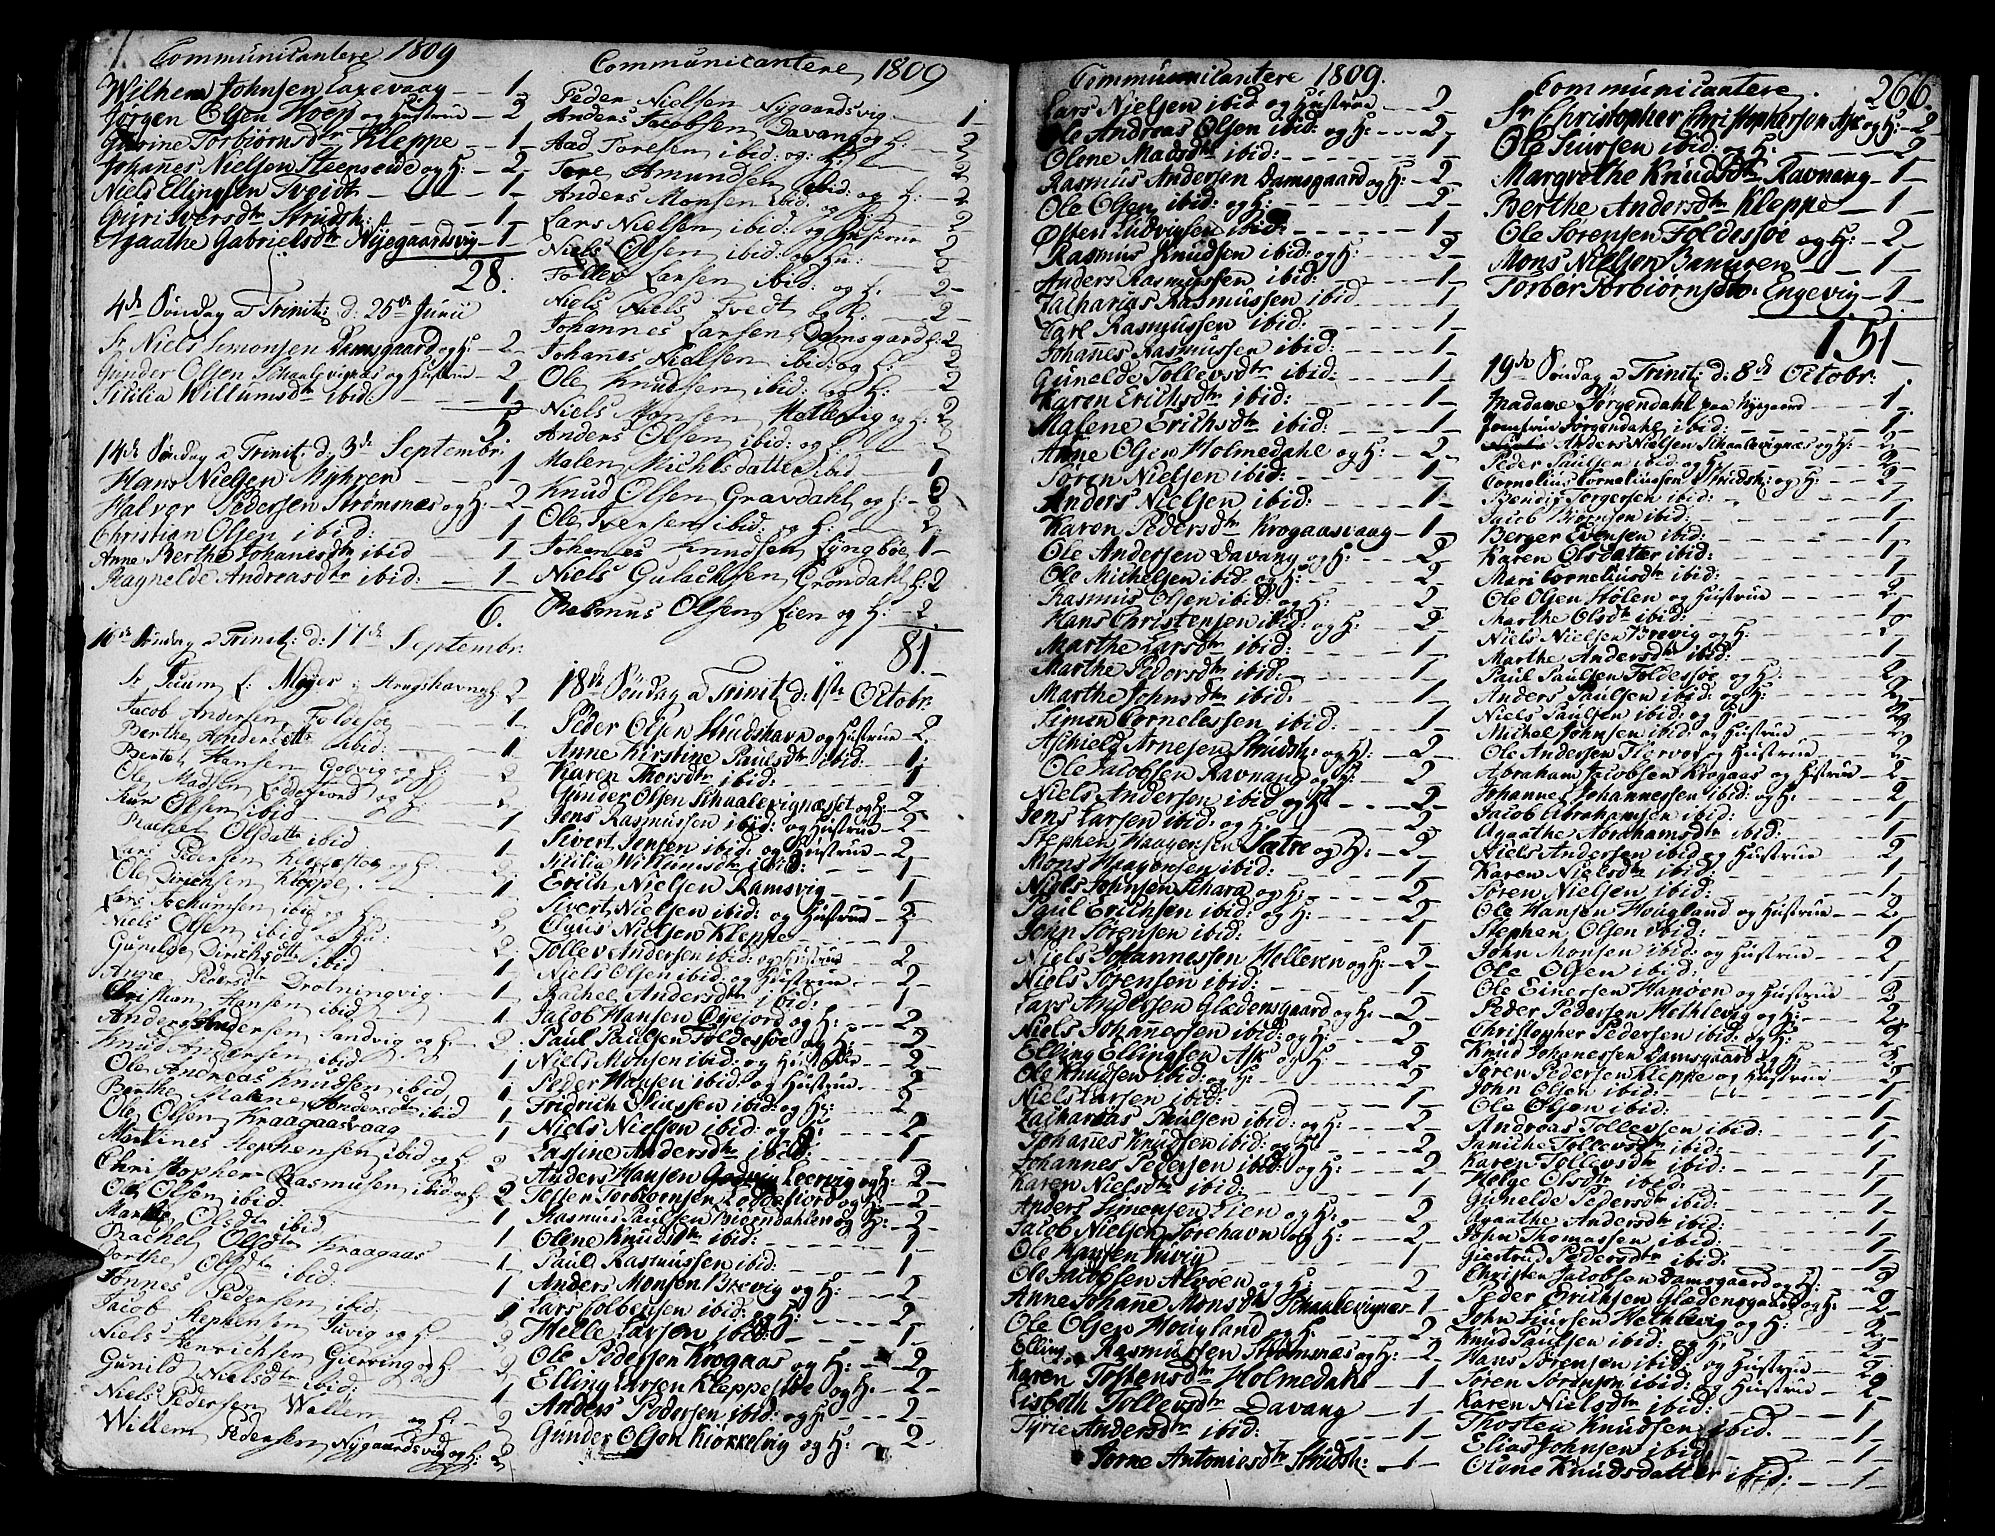 Communicantere 1809
Wilhem Johnsen Laxevaag - 1 -
Jørgen Olsen Hoesp og Hustrue - 2
Gurine Torbiørnsdtr Kleppe - 1 -
Johanes Nielsen Steensæide og H: - 2 -
Niels Ellingsen Tveidt - 1 -
Guri Iversdtr Strudsh: - 1 -
Agaathe Gabrielsdtr Nyegaardsvig - 1
28.
4de Søndag a Trinit: d: 25de Junii
Sr Niels Simonsen Damsgaard og H: - 2 -
Gunder Olsen Schaalevignæs og Hustrue - 2 -
Sisilia Willumsdtr ibid - 1
5.
14de Søndag a Trinit: d: 3de Septembr:
Hans Nielsen Myhren - 1
Halvor Pedersen Strømmes og H: - 2 -
Christian Olsen ibid: - 1
Anne Berthe Johanesdtr ibid - 1
Ragnelde Andreasdtr ibid: - 1 -
6.
16de Søndag a Trinit: d: 17de Septembr:
2
Jacob Andersen Foldesøe - 1
Berthe Andersdtr ibid: - 1
Bertel Hansen Godvig og H: 2
Ole Madsen Loddefiord og H: 2
Olsen ibid - 1
Rachel Olsdtr ibid - 1
Lars Pedersen
Ole Dirichsen Kleppe - 1
Lars Jochumsen ibid og H:
Niels Olsen ibid og Hu: 2
Gunilde Dirichsdtr ibid - 1
Anne Pedersdtr Drotningvig - 1
Christian Hansen ibid - 1
Anders Andersen Sandvig og H: 2
Knud Andersen ibid - 1
Ole Andreas Knudsen ibid 1
Berthe Malene Andersdtr ibid 1
Ole Olsen Kraagaasvaag - 1
Martines Stephensen ibid og H: 2
Christopher Rasmusen ibid og H: 2
Ole Olsen ibid - 1
Marthe Olsdtr ibid - 1
Rachel Olsdtr Kraagaas 1
Berthe Olsdtr ibid: 1
Tønnes Pedersen ibid: 1
Jacob Stephensen Juvig og H: 2
Niels Henrichsen Gierring og H: 2
Gunild Nielsdtr ibid: - 1
Niels Pedersen Wallem og H: 2
Willem Pedersen Nygaardsvig og H: 2
Communicantere 1809
Peder Nielsen Nygaardsvig - 1 -
Anders Jacobsen Davang og H: 2
Aad Toresen ibid: og: H: - 2
Tore Amundsen ibid: og H: - 2
Anders Monsen ibid: og H: - 2
Lars Nielsen ibid: og Hustrue 2
Niels Olsen ibid: og Hu: - 2
Tollev Larsen ibid: og H: - 2 -
Niels Niels Tvedt og H: - 2 -
Johannes Larsen Damsgaard H: 2
Johanes Nielsen ibid: og H: 2
Ole Knudsen ibid: og H: - 2
Niels Monsen Hetlevig og H: 2
Anders Olsen ibid: og H - 2
Malen Michelsdatter ibid - 1
Knud Olsen Gravdahl og H: - 2
Ole Iversen ibid: og H: - 2
Johanes Knudsen Lyngbøe 1 -
Niels Gulachsen Grøndahl H: 2
Rasmus Olsen Lien og H: - 2 -
81.
18de Søndag a Trinit: d: 1ste Octobr:
Peder Olsen Strudshavn og Hustrue 2
Anne Kirstine Paulsdtr ibid. - 1
Karen Thorsdtr ibid: - 1
Gunder Olsen Schaalevignæset og H: - 2
Jens Rasmussen ibid: og Hustrue - 2 -
Sivert Jensen ibid: og Hustrue - 2 -
Sicilia Willumsdtr ibid: - 1 -
Erich Nielsen Ramsvig - 1 -
Sivert Nielsen ibid: og Hustrue - 2
Claus Nielsen Kleppe - 1
Tollev Andersen ibid: og Hustrue - 2 -
Niels Olsen ibid: og Hustrue - 2 -
Rachel Andersdtr ibid: - 1
Jacob Hansen Øyejord og H: - 2 -
Paul Paulsen Foldessøe og H: - 2 -
Niels Monsen ibid: og Hustrue - 2 -
Peder Hansen ibid: og Hustrue - 2
Fridrich Siussen ibid: og H: - 2 -
Niels Nielsen ibid: og H: - 2 -
Ensine Andersdtr ibid: - 1
Anders Hansen Leervig og H: - 2 -
Joften Torbiørnsen Loddefiord og H: - 2 -
Rasmus Paulsen Biørndahlen og H: - 2 -
Oline Knudsdtr ibid: - 1
Paul Rasmussen ibid: - 1 -
Anders Monsen Brevig og H: - 2
Lars Tolbensen ibid: og H: - 2 -
Helle Larsen ibid: - 1 -
Ole Pedersen Krogaas og H: - 2
Elling Larsen Kleppestøe og H: - 2 -
Anders Pedersen ibid: og H: - 2
Gunder Olsen Kiøkkelvig og H: - 2 -
Communicantere 1809.
Lars Nielsen ibid og Hustrue - 2
Ole Andreas Olsen ibid: og H: - 2 -
Oline Madsdtr ibid: - 1
Rasmus Andersen Damsgaard og H: - 2
Ole Olsen ibid: og H: - 2
Østen Ludvigsen ibid: - 1
Rasmus Knudsen ibid: og H: - 2 -
Anders Rasmussen ibid: - 1
Zacharias Rasmussen ibid - 1
Carl Rasmussen ibid: - 1
Johanes Rasmussen ibid: - 1
Gunelde Tollevsdtr ibid: - 1
Karen Erichsdtr ibid: - 1
Malene Erichsdtr ibid: - 1
Arne Olsen Holmedahl og H: - 2 -
Søren Nielsen ibid: - 1
Anders Nielsen ibid: - 1 -
Karen Pedersdtr Krogaasvaag - 1 -
Ole Andersen Davang og H: - 2
Ole Michelsen ibid: og H: - 2
Rasmus Olsen ibid: og H: - 2
Hans Christensen ibid: og H: - 2 -
Marthe Larsdtr ibid: - 1
Marthe Pedersdtr ibid: - 1
Marthe Johnsdtr ibid: - 1
Simon Cornelessen ibid: - 1 -
Aschield Arnesen Strudsh: og H: - 2
Ole Jacobsen Ravnang og H: - 2
Niels Andersen ibid og H: - 2 -
Jens Larsen ibid: og H: - 2
Stephen Haagensen Sætre og H: - 2
Mons Haagensen ibid: - 1 -
Niels Johnsen Schara og H: - 2
Paul Erichsen ibid: og H: - 2
John Sørensen ibid: - 1
Niels Johannessen Hølleren og H: - 2 -
Niels Sørensen ibid: - 1
Lars Andersen Glædensgaard og H: - 2
Niels Johannessen ibid: og H: - 2
Elling Ellingsen Ask og H: - 2
Ole Knudsen ibid: og H: - 2
Niels Larsen ibid: - 1 -
Zacharias Paulsen ibid: og H: - 2
Johanes Knudsen ibid: og H: - 2
Johannes Pedersen ibid: og H: - 2
Karen Nielsdtr ibid: - 1
Anders Simensen Lien og H: - 2
Jacob Nielsen Sørehavn og H: - 2
Ole Hansen Juvig - 1
Ole Jacobsen Alvøen og H: - 2
Anne Johanne Monsdtr Schaalevignæs - 1 -
Ole Olsen Hougland og H: - 2
Elling Rasmussen Strømsnæs og H: - 2 -
Karen Tostensdtr Holmedahl - 1 -
Lisbeth Tollevsdtr Davang - 1 -
Tyrie Andersdtr ibid: - 1 -
Sørne Antonisdtr Strudsh: - 1 -
Communicantere. 266.
Sr Christopher Christophersen Ask og H: - 2
Ole Siursen ibid: og H: - 2
Margrethe Knudsdtr Ravnang - 1 -
Berthe Andersdtr Kleppe - 1 -
Ole Sørensen Foldessøe og H: - 2
Mons Nielsen Banuren - 1 -
Torber Torbiørnsdtr Engevig - 1 -
151
19de Søndag a Trinit: d: 8de Octobr:
Madame Jørgendahl paa Nyegaard - 1 -
Jomfrue Jørgendahl ibid: - 1
Anders Nielsen Schaalevignæs og H: - 2 -
Peder Paulsen ibid og H: - 2 -
Cornelius Corneliussen Strudsh: og H: - 2
Bendix Jørgersen ibid: - 1
Jacob Biørnsen ibid: - 1
Berger Evensen ibid: - 1
Karen Olsdatter ibid: - 1
Mari Corneliusdtr ibid: - 1
Ole Olsen Hølen og Hustrue - 2
Marthe Olsdtr ibid: - 1
Niels Nielsen Brevig og H: - 2
Marthe Andersdtr ibid: - 1
Paul Paulsen Foldessøe og H: - 2
Anders Paulsen ibid: og H: - 2 -
Niels Paulsen ibid: og H: - 2
Michel Johnsen ibid: og Hustrue - 2
Ole Andersen Florvog og Hustrue - 2
Abraham Jacobsen Krogaas og Hustrue - 2 -
Johannes Johannessen ibid: og H: - 2
Jacob Abrahamsen ibid: - 1
Agaathe Abrahamsdtr ibid: - 1
Niels Andersen ibid og Hustrue - 2
Karen Nielsdtr ibid: - 1
Søren Nielsen ibid: - 1
Ole Hansen Hougland og Hustrue - 2
Stephen Olsen ibid: - 1
John Monsen ibid: og Hustrue - 2
Ole Olsen ibid: - 1
Ole Einersen Hanøen og Hustrue - 2 -
Peder Pedersen Hethlevig og H: - 2
Christopher Pedersen ibid: og H: - 2
Knud Johanessen Damsgaard og H: - 2
Søren Pedersen Kleppe og Hustrue - 2 -
John Olsen ibid: - 1 -
Ole Olsen ibid: - 1 -
Andreas Tollevsen ibid: - 1 -
Janiche Tollevsdtr ibid: - 1
Karen Tollevsdtr ibid: - 1
Helge Olsdtr ibid: - 1
Gunelde Pedersdtr ibid: - 1
Agaathe Andersdtr ibid: - 1
John Thomassen ibid: - 1
Giertrud Pedersdtr ibid: - 1
Christen Jacobsen Damsgaard og H: - 2
Peder Erichsen Glædensgaard og H: - 2 -
John Siursen Hethlevig og H: - 2
Knud Paulsen ibid: og H: - 2
Hans Sørensen ibid: og Hustrue - 2
Søren Sørensen ibid: og Hustrue - 2
Karen Nielsdtr ibid: - 1
Thosten Knudsen ibid: - 1
Elias Johnsen ibid: - 1
Oline Knudsdatter ibid: - 1 -